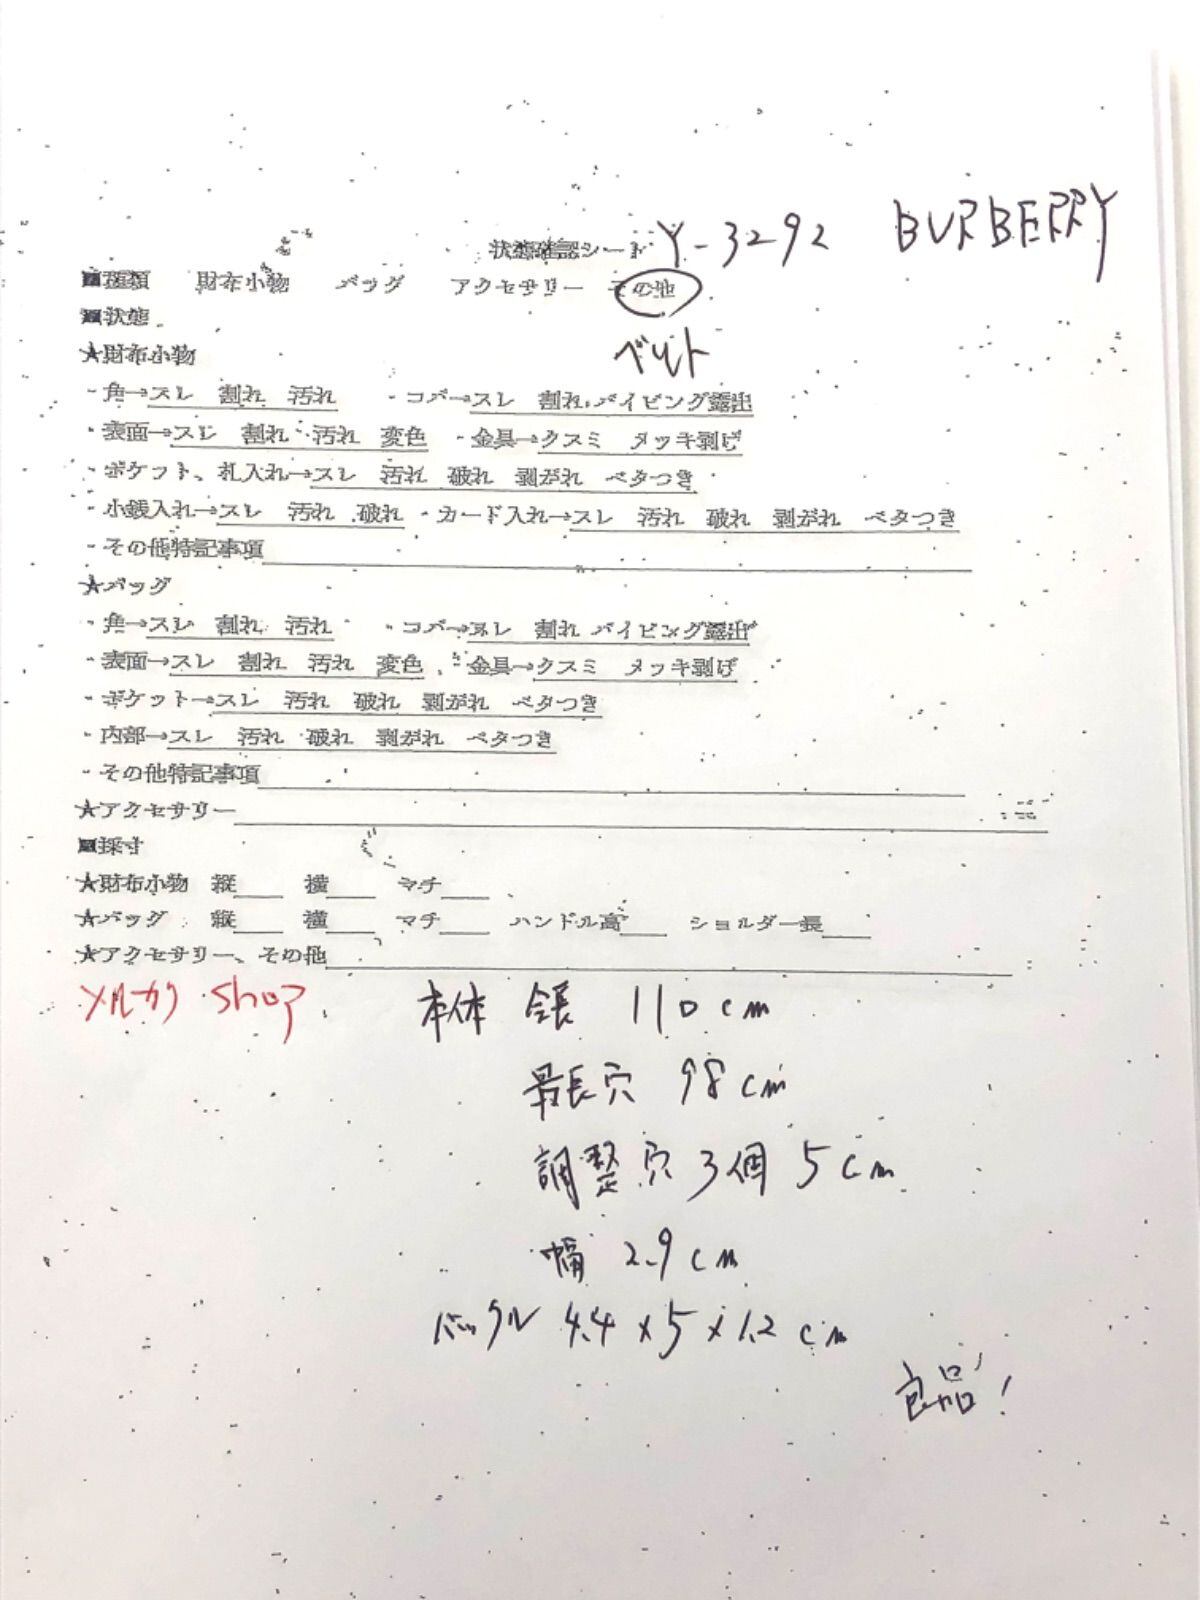 状態確認シート Y-3292 BURBERRY
■種類 財布小物 バッグ アクセサリー その他
■状態 ベルト
★財布小物
・角→スレ 割れ 汚れ ・コバ→スレ 割れ パイピング露出
・表面→スレ 割れ 汚れ 変色 ・金具→クスミ メッキ剥げ
・ポケット、札入れ→スレ 汚れ 破れ 剥がれ ベタつき
・小銭入れ→スレ 汚れ 破れ ・カード入れ→スレ 汚れ 破れ 剥がれ ベタつき
・その他特記事項
★バッグ
・角→スレ 割れ 汚れ ・コバ→スレ 割れ パイピング露出
・表面→スレ 割れ 汚れ 変色 ・金具→クスミ メッキ剥げ
・ポケット→スレ 汚れ 破れ 剥がれ ベタつき
・内部→スレ 汚れ 破れ 剥がれ ベタつき
・その他特記事項
★アクセサリー
■採寸
★財布小物 縦 横 マチ
★バッグ 縦 横 マチ ハンドル高 ショルダー長
★アクセサリー、その他
メルカリ shop 本体 全長 110cm
最長穴 98cm
調整穴 3個 5cm
幅 2.9cm
バックル 4.4×5×1.2cm
良品!